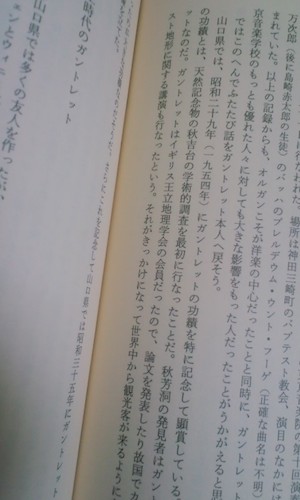 万次郎（後に島崎赤太郎の生徒）のバッハのプレルデウム・ウント・フーゲ（正確な曲名は不明
まれていた。以上の記録からも、オルガンこそが洋楽の中心だったことと同時に、ガントレット
京音楽学校のもっとも優れた人々に対しても大きな影響をもった人だったことがうかがえると思
ではこのへんでふたたび話をガントレット本人へ戻そう。
山口県では、昭和二十九年（一九五四年）にガントレットの功績を特に記念して顕賞している
の功績とは、天然記念物の秋吉台の学術的調査を最初に行なったことだ。秋芳洞の発見者はガン
ットなのだ。ガントレットはイギリス王立地理学会の会員だったので、論文を発表したり故国でカ
スト地形に関する講演も行なったという。それがきっかけになって世界中から観光客が来るように
これを記念して山口県では昭和三十五年にガントレット
時代のガントレット
山口県では多くの友人を作ったが、